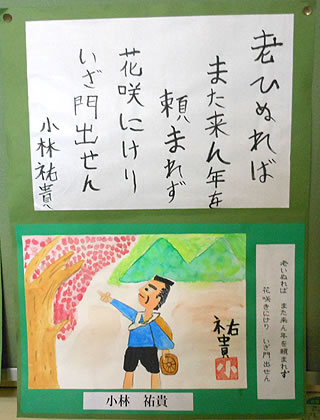 老ひぬれば
また来ん年を
頼まれず
花咲にけり
いざ門出せん
小林祐貴
祐貴
小
老いぬれば また来ん年を頼まれず
花咲きにけり いざ門出せん
小林 祐貴